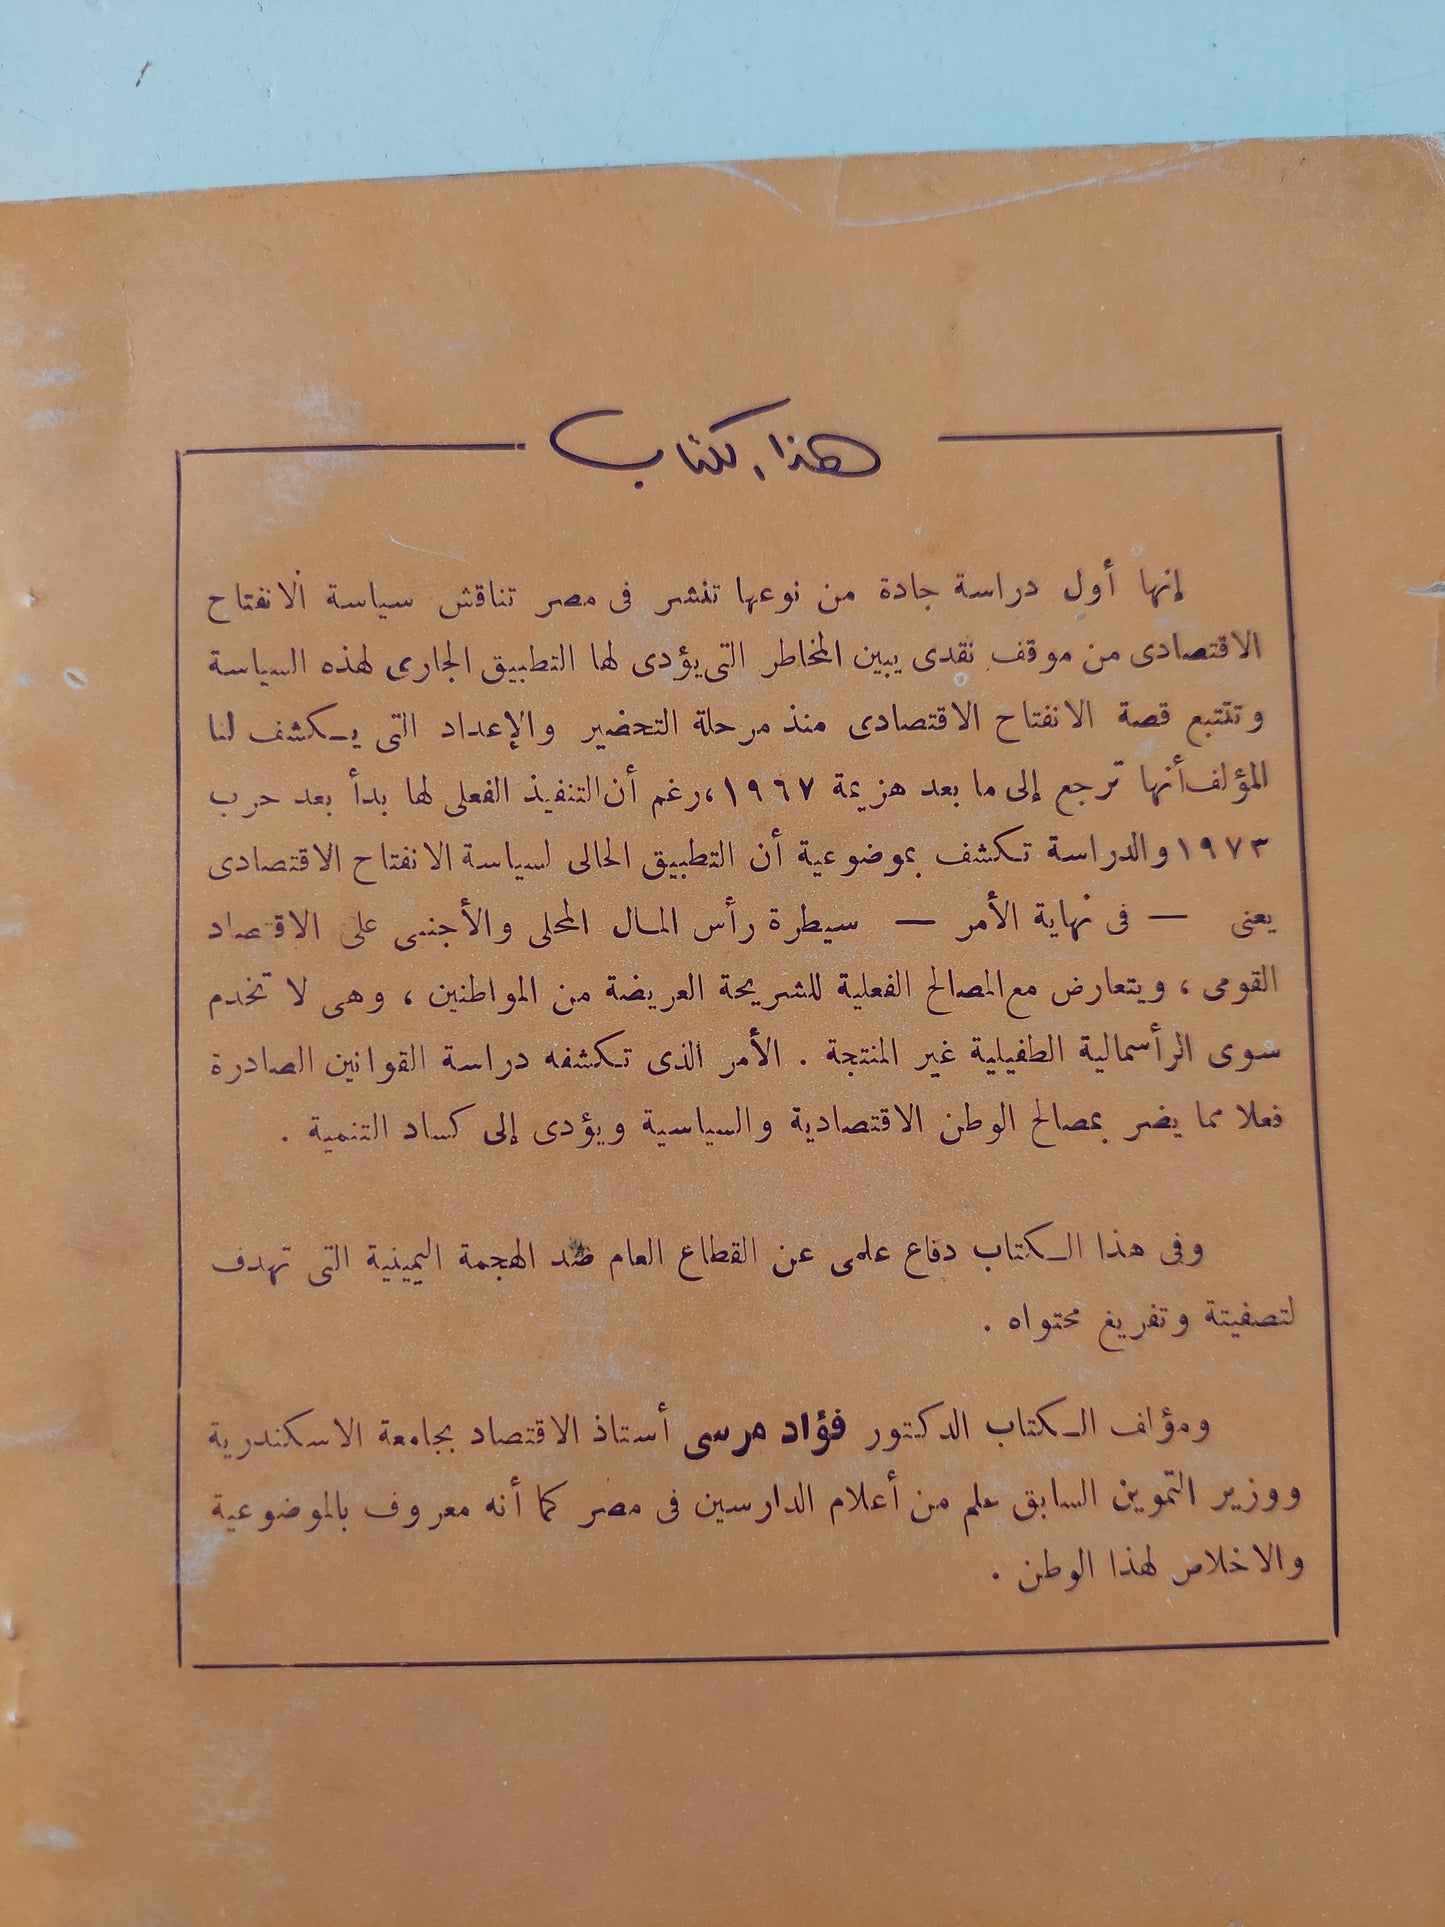 هذا الكتاب
إنها أول دراسة جادة من نوعها تنشر فى مصر تناقش سياسة الانفتاح
الاقتصادى من موقف نقدى يبين المخاطر التى يؤدى لها التطبيق الجارى لهذه السياسة
وتتتبع قصة الانفتاح الاقتصادى منذ مرحلة التحضير والإعداد التى يكشف لنا
المؤلف أنها ترجع إلى ما بعد هزيمة ١٩٦٧، رغم أن التنفيذ الفعلى لها بدأ بعد حرب
١٩٧٣ والدراسة تكشف بموضوعية أن التطبيق الحالى لسياسة الانفتاح الاقتصادى
يعنى — فى نهاية الأمر — سيطرة رأس المال المحلى والأجنبى على الاقتصاد
القومى ، ويتعارض مع المصالح الفعلية للشريحة العريضة من المواطنين ، وهى لا تخدم
سوى الرأسمالية الطفيلية غير المنتجة . الأمر الذى تكشفه دراسة القوانين الصادرة
فعلا مما يضر بمصالح الوطن الاقتصادية والسياسية ويؤدى إلى كساد التنمية .
وفى هذا الكتاب دفاع علمى عن القطاع العام ضد الهجمة اليمينية التى تهدف
لتصفيتة وتفريغ محتواه .
ومؤلف الكتاب الدكتور فؤاد مرسى أستاذ الاقتصاد بجامعة الاسكندرية
ووزير التموين السابق علم من أعلام الدارسين فى مصر كما أنه معروف بالموضوعية
والاخلاص لهذا الوطن .